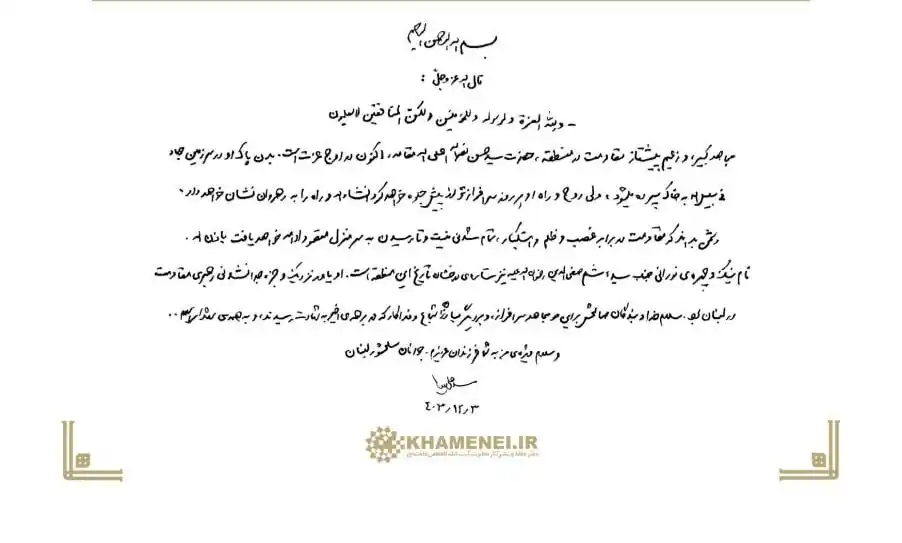 بسم الله الرحمن الرحیم
قال الله عزوجل :
- ولله العزة و لرسوله وللمؤمنین ولکن المنافقین لایعلمون
مجاهد کبیر، و زعیم پیشتاز مقاومت در منطقه، حضرت سید حسن نصرالله اعلی الله مقامه، اکنون در اوج عزت است. بدن پاک او در سرزمین جهاد
فی سبیل الله به خاک سپرده میشود، ولی روح و راه او هر روز سرافرازتر از پیش جلوه خواهد کرد انشاءالله و راه را به رهروان نشان خواهد داد.
دشمن بداند که مقاومت در برابر غصب و ظلم و استکبار، تمام شدنی نیست و تا رسیدن به سرمنزل مقصود ادامه خواهد یافت باذن الله.
نام نیک و چهره‌ی نورانی جناب سید هاشم صفی الدین رضوان الله علیه نیز ستاره‌ی درخشان تاریخ این منطقه است. او یاور نزدیک و جزء جدانشدنی رهبری مقاومت
در لبنان بود. سلام خدا و بندگان صالحش بر این دو مجاهد سرافراز، و بر دیگر مبارزان شجاع و فداکار که در برهه‌ی اخیر به شهادت رسیدند، و به همه‌ی شهدای اسلام..
و سلام ویژه‌ی من به شما فرزندان عزیزم، جوانان سلحشور لبنان
سید علی خامنه‌ای
۴۰۳/۱۲/۳
KHAMENEI.IR
دفتر حفظ و نشر آثار حضرت آیت‌الله العظمی خامنه‌ای